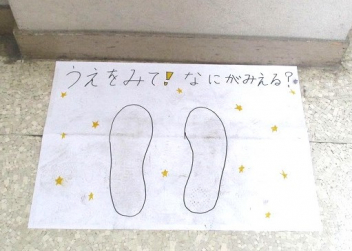 うえをみて!なにがみえる?